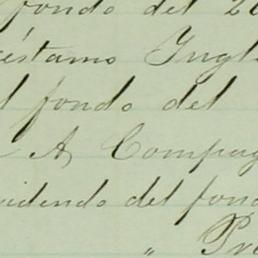 fondo del 2
éstamo Ingl
l fondo del
A Compag
videndo del fond
" Pr